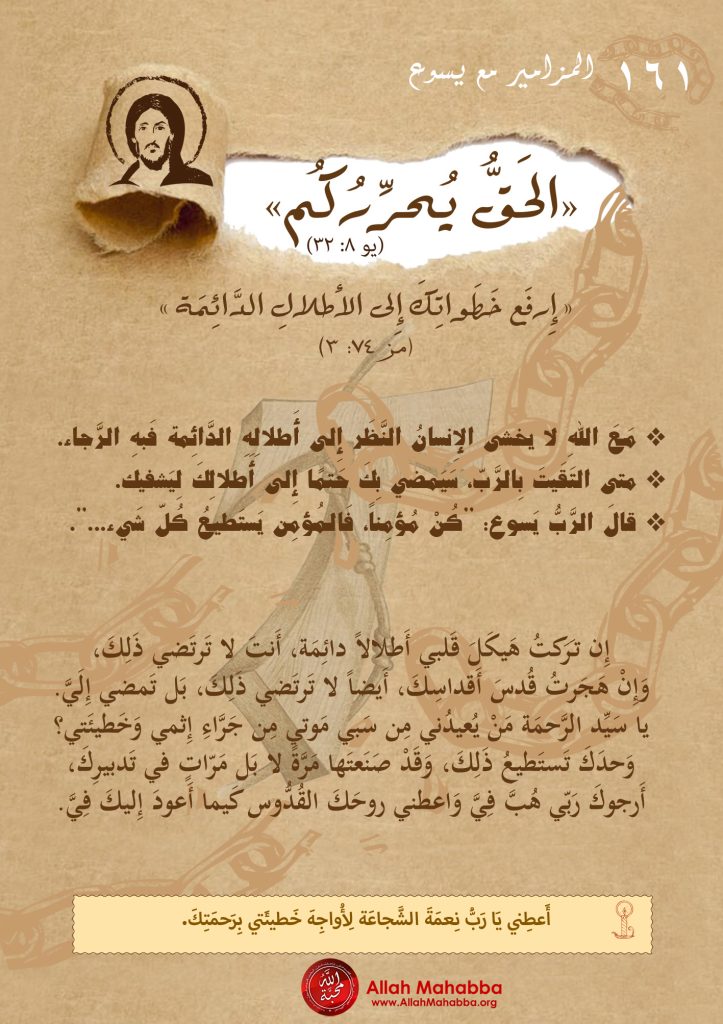 ١٦١ المزامير مع يسوع
«الحَقُّ يُحرِّرُكُم»
(يو ٨: ٣٢)
«إِرفَع خَطَواتِكَ إِلى الأَطلالِ الدَّائِمَة»
(مز ٧٤: ٣)
❖ مَعَ اللهِ لا يخشى الإِنسانُ النَّظَر إِلى أَطلالِهِ الدَّائِمة فَبهِ الرَّجاء.
❖ متى التَقيتَ بِالرَّبّ، سَيَمضي بِكَ حَتمًا إِلى أَطلالِكَ لِيَشفيك.
❖ قالَ الرَّبُّ يَسوع: "كُنْ مُؤمِناً، فَالمُؤمِن يَستطيعُ كُلّ شَيء...".
إِن تَركتُ هَيكَلَ قَلبي أَطلالاً دائِمَة، أَنتَ لا تَرتَضي ذَلِكَ،
وَإِنْ هَجَرتُ قُدسَ أَقداسِكَ، أَيضاً لا تَرتَضي ذَلِكَ، بَل تَمضي إِلَيَّ.
يا سَيِّد الرَّحمَة مَنْ يُعيدُني مِن سَبي مَوتي مِن جَرَّاءِ إِثمي وَخَطيئَتي؟
وَحدَكَ تَستَطيعُ ذَلِكَ، وَقَدْ صَنَعتَها مَرَّةً لا بَل مَرّاتٍ في تَدبيرِكَ،
أَرجوكَ رَبّي هُبَّ فِيَّ وَاعطني روحَكَ القُدُّوس كَيما أَعودَ إِليكَ فِيَّ.
أَعطِني يَا رَبُّ نِعمَةَ الشَّجاعَة لِأُواجِهَ خَطيئَتي بِرَحمَتِكَ.
الله محبة
Allah Mahabba
www.AllahMahabba.org